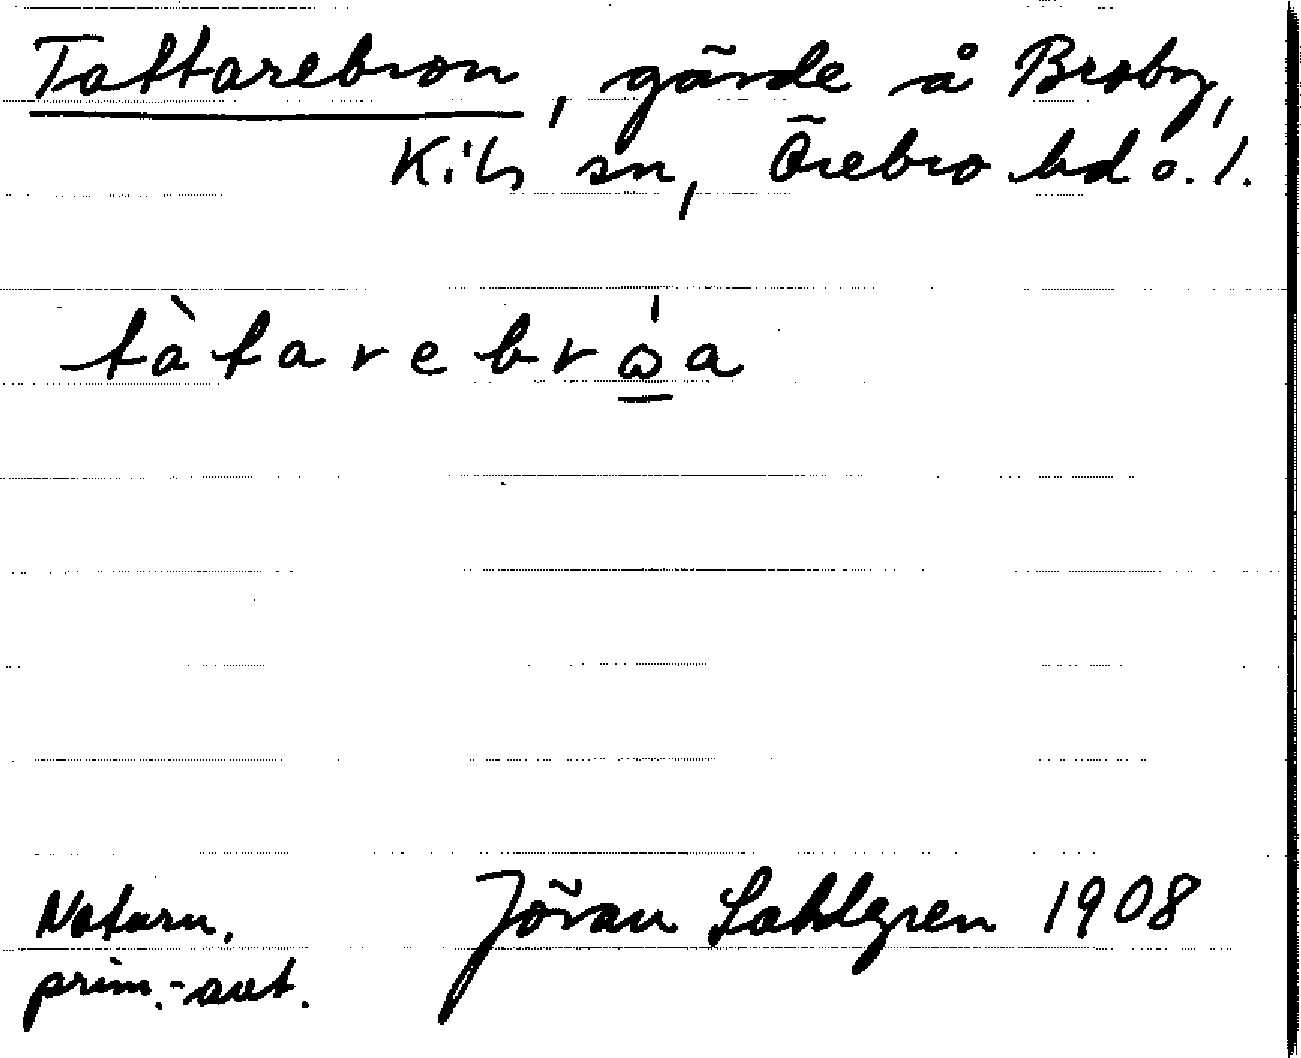 Tattarebron, gärde å Broby,
Kils sn, Örebro hd o. l.
tàtarebrώ̲a
Naturn. Jöran Sahlgren 1908
prim.-avt.